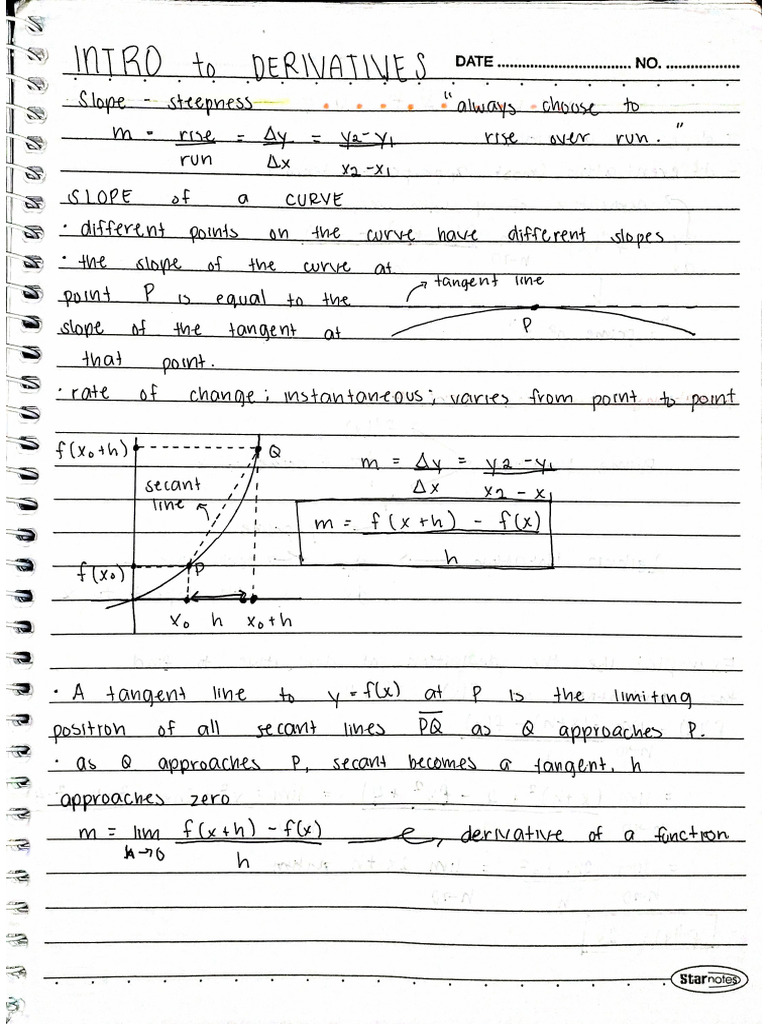 INTRO to DERIVATIVES DATE ................................ NO. ..................
Slope - steepness "always choose to
m = rise/run = Δy/Δx = y2-y1/x2-x1 rise over run."
SLOPE of a CURVE
· different points on the curve have different slopes
· the slope of the curve at
tangent line
point P is equal to the
slope of the tangent at
P
that point.
· rate of change; instantaneous; varies from point to point
f(x₀+h) Q
m = Δy/Δx = y2-y1/x2-x1
secant
line
m = f(x+h) - f(x)/h
f(x₀) P
x₀ h x₀+h
· A tangent line to y=f(x) at P is the limiting
position of all secant lines P̅Q̅ as Q approaches P.
· as Q approaches P, secant becomes a tangent, h
approaches zero
m = lim h→0 f(x+h) - f(x)/h , derivative of a function
Starnotes